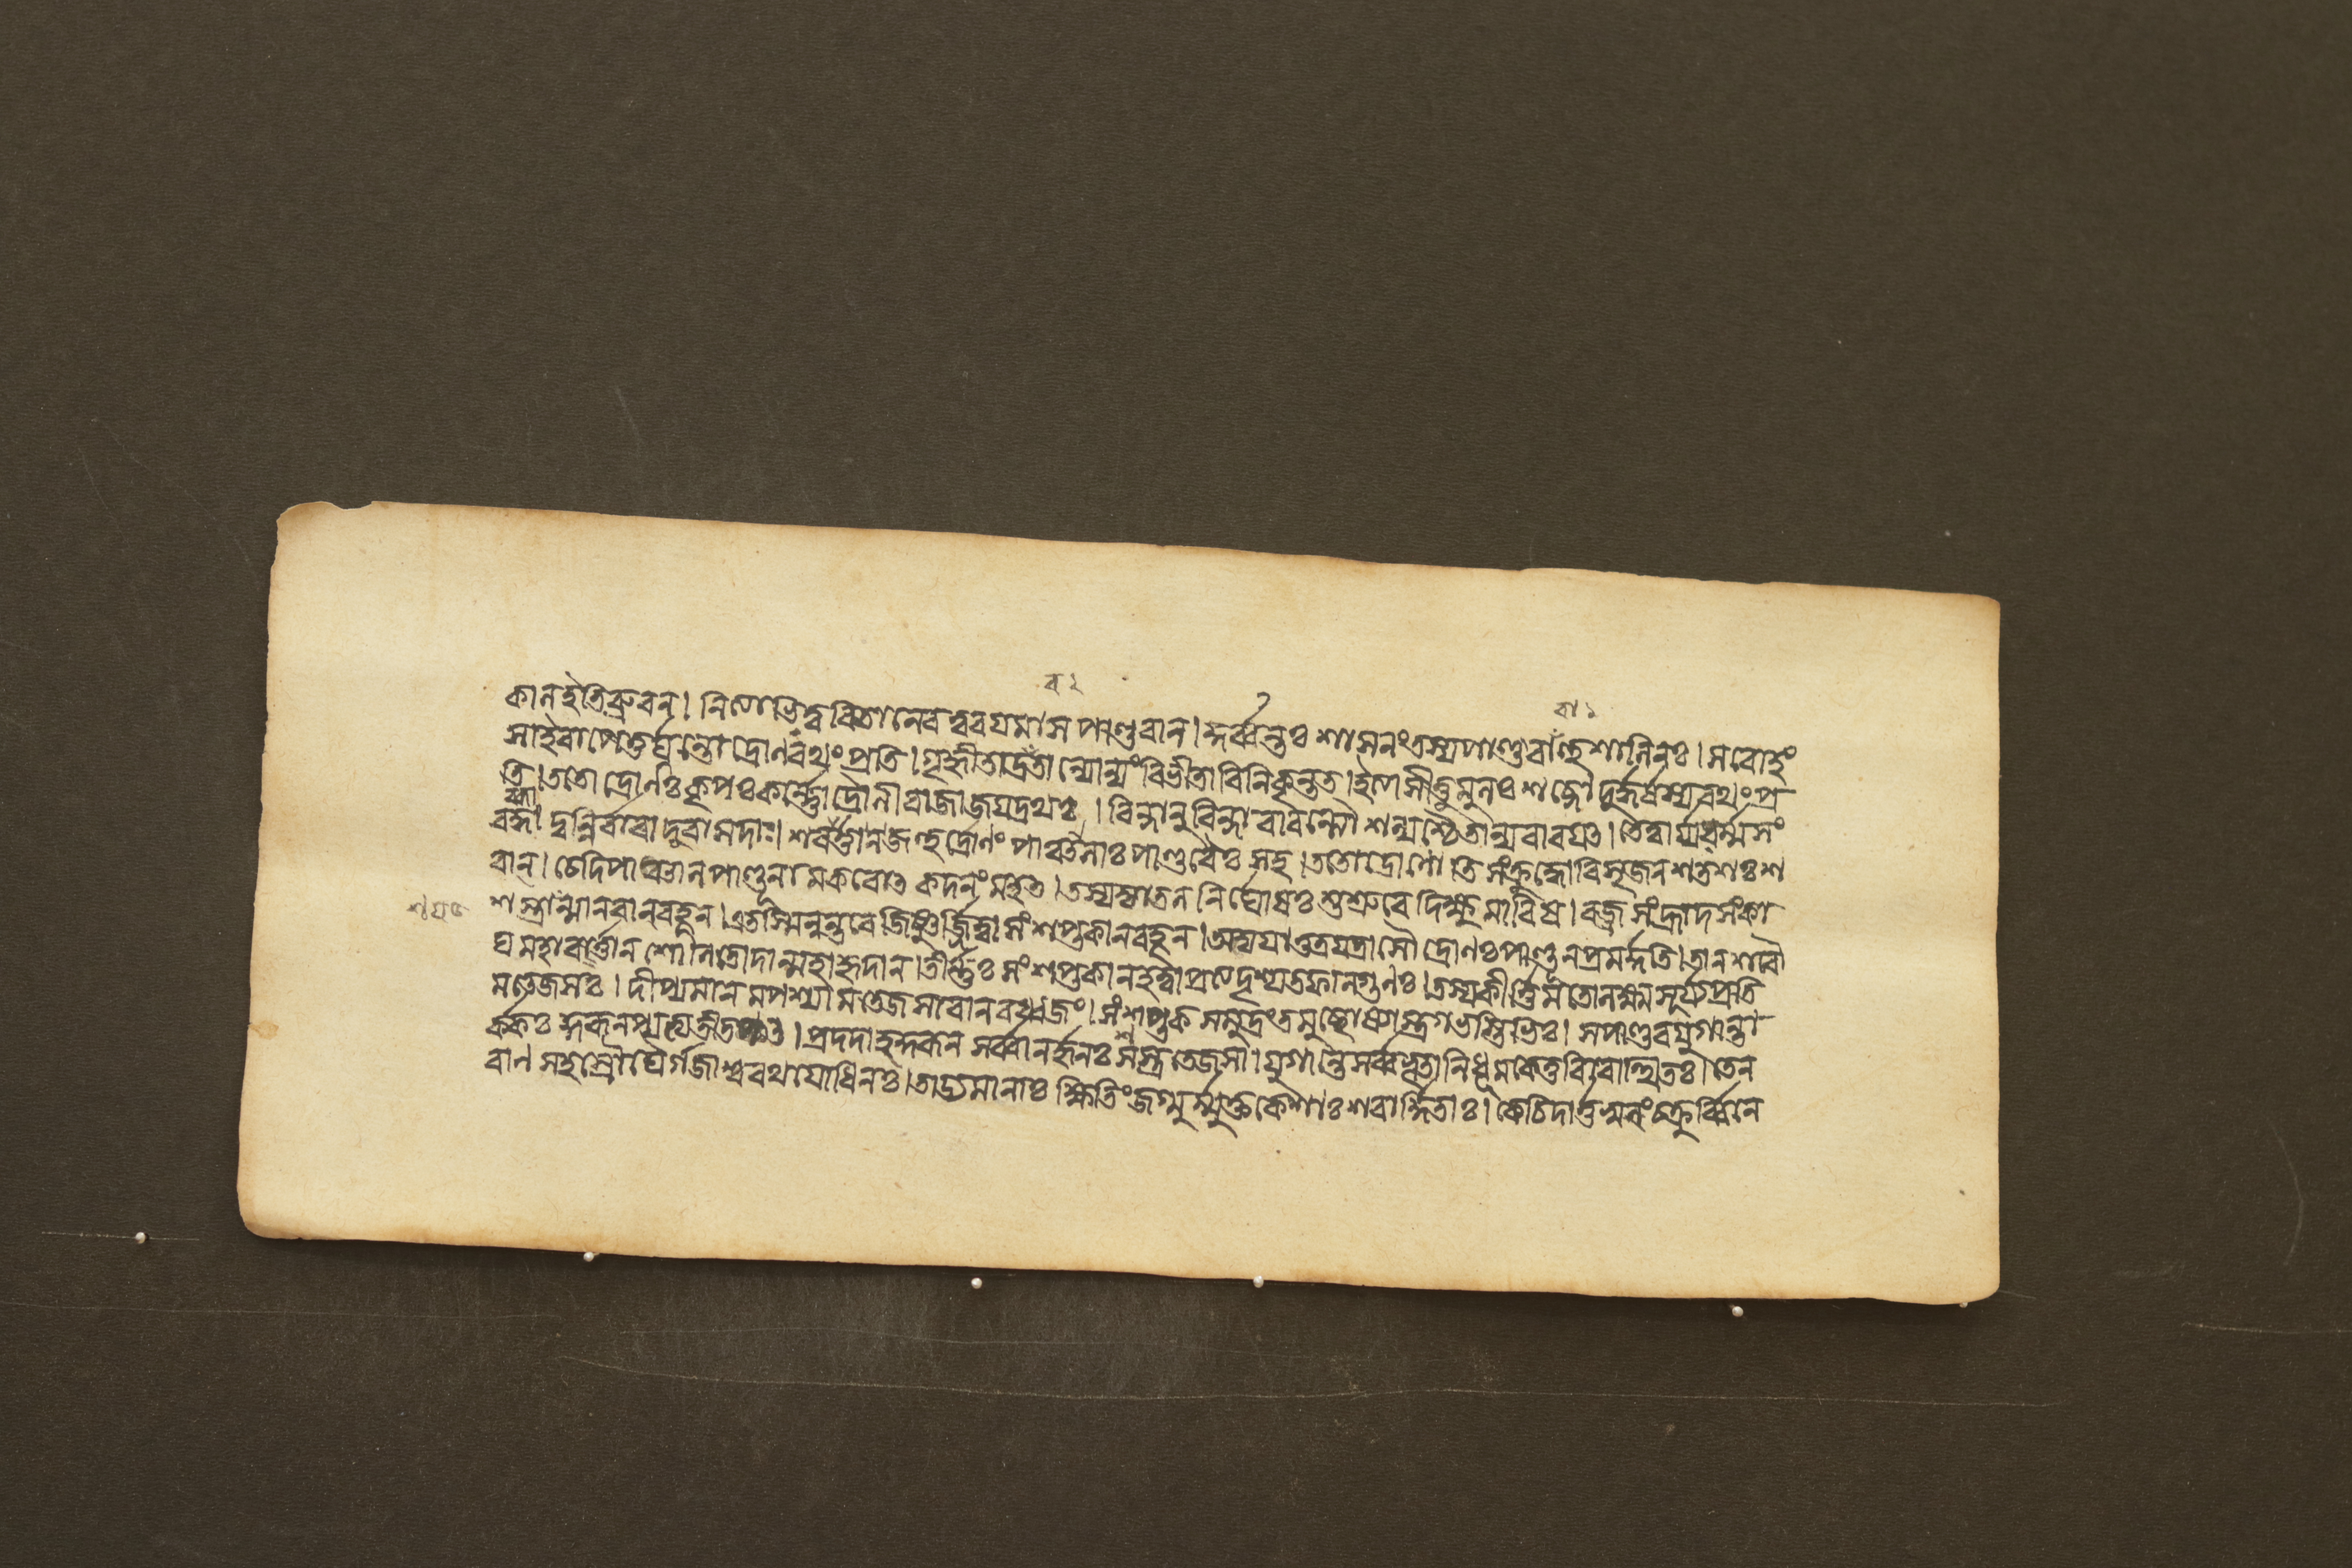 ব ২
বা ১
কানইতিব্রুবন। নিগ্লাভিত্ববিতানেবত্ববযমাস পাণ্ডবান। কুর্ব্বন্তঃ শাসনংতস্যপাণ্ডবাঁন্থশানিনঃ। সবোহুং
সাইবাপেতুর্ঘ্নন্তো দ্রোণবথংপ্রতি। গৃহ্নীতাদ্রতান্যোন্যংবিভীতাবিনিকৃন্তত। ইত্যাসীত্তুমুনঃ শব্দো দুর্দ্ধর্ষস্যবথংপ্র
তি। ততো দ্রোণঃকৃপঃকর্ন্নোদ্রৌনীরাজাজযদ্রথঃ। বিন্দানুবিন্দাবাবন্ত্যৌ শল্যশ্চৈতান্যবাবযত। তেত্বার্য্যধর্ম্মসং
বব্ধা দুন্নির্বাবা দুবাসদাঃ। শবার্ত্তানজহুর্দ্রোণং পাঞ্চানাঃপাণ্ডবৈঃ সহ। ততোদ্রোণোতিসংক্রুদ্ধোবিসৃজন শতশঃ শ
বান। চেদিপাঞ্চানপাণ্ডূনামকবোত কদনংমহত। তস্যজ্যাতননির্ঘোষঃ শুশ্রুবে দিক্ষু মাবিষ। বজ্রসংহ্রাদসংকা
শস্ত্রান্মানবানবহূন। এতস্মিন্নন্তবে জিষ্ণুর্জিত্বাসংশপ্তকানবহূন। অভ্যযাত্তত্রযত্রাসৌ দ্রোণঃপাণ্ডূনপ্রমর্দ্দতি। তানশবৌ
ঘমহাবর্ত্তান শোনিতোদান্মহাহ্রদান। তীর্ন্নঃ সংশপ্তকানহত্বাপ্রত্যদৃশ্যতফানগুনঃ। তস্যকীর্ত্তিমতোনক্ষ্মসূর্য্যপ্রতি
মতেজসঃ। দীপ্যমানমপশ্যামতেজসাবানবধ্বজং। সংশপ্তকসমুদ্রংতমুচ্ছোষ্যাস্ত্রগভস্তিভিঃ। সপাণ্ডবযুগান্তা
র্কঃ কুরূনপ্যভ্যতীতপত। প্রদদাহকুরূন সর্ব্বানর্জুনঃ শস্ত্রতেজসা। যুগান্তেসর্ব্বভূতানিধূমকেতুবিবোত্থিতঃ। তেন
বান সহস্রৌঘৈর্গজাশ্ববথযোধিনঃ। তাড্যমানাঃ ক্ষিতিংজগ্মুর্ম্মুক্তকেশাঃশবার্দ্দিতাঃ। কেচিদার্ত্তস্বনংচক্রুর্ব্বিনে